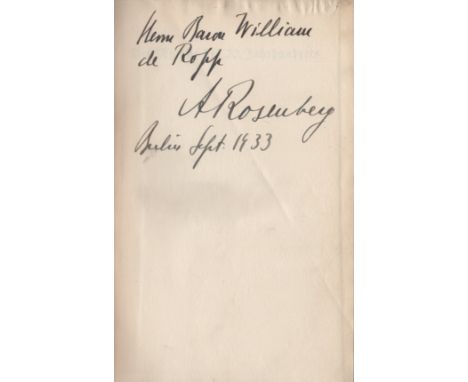 Herrn Baron William
de Ropp
A Rosenberg
Berlin Sept. 1933